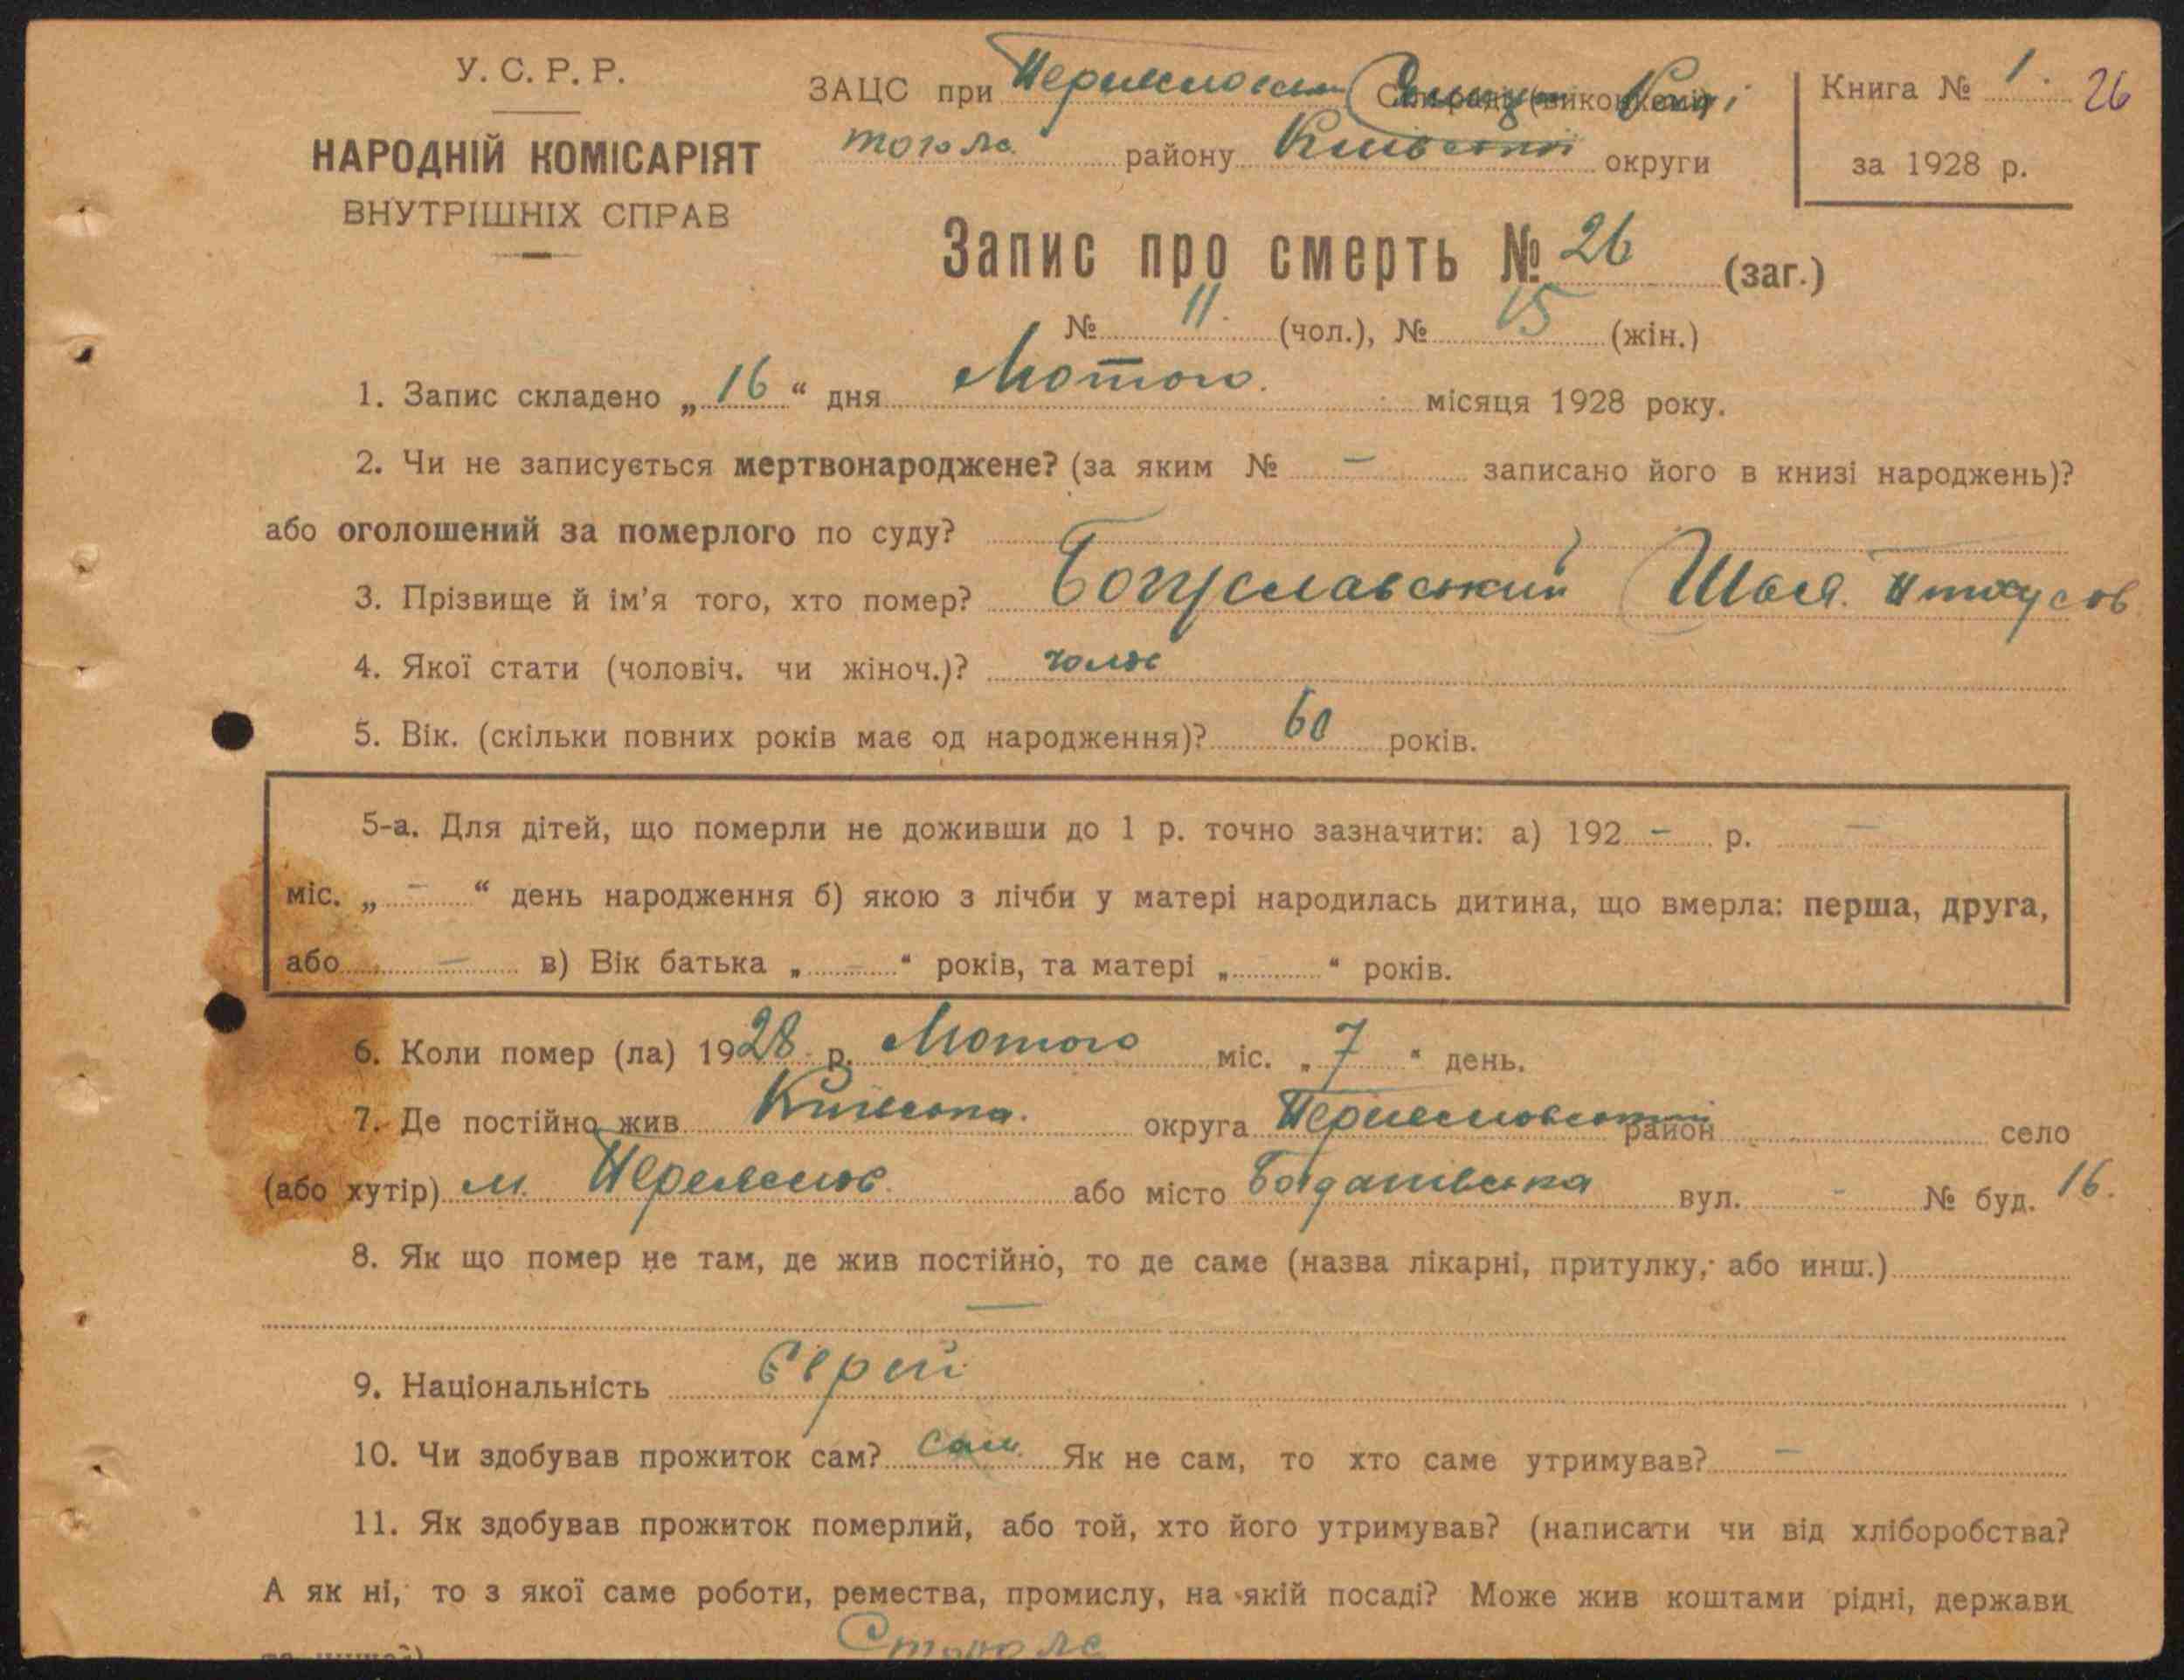 У. С. Р. Р.
НАРОДНІЙ КОМІСАРІЯТ
ВНУТРІШНІХ СПРАВ
ЗАЦС при
того ж району Київської округи
Книга № 1. 26
за 1928 р.
Запис про смерть № 26 (заг.)
№ 11. (чол.), № 15 (жін.)
1. Запис складено „16“ дня Лютого. місяця 1928 року.
2. Чи не записується мертвонароджене? (за яким № – записано його в книзі народжень)?
або оголошений за померлого по суду?
3. Прізвище й ім’я того, хто помер? Богуславський Шая
4. Якої стати (чоловіч. чи жіноч.)? чолов
5. Вік. (скільки повних років має од народження)? 60 років.
5-а. Для дітей, що померли не доживши до 1 р. точно зазначити: а) 192 – р. –
міс. „ – “ день народження б) якою з лічби у матері народилась дитина, що вмерла: перша, друга,
або – в) Вік батька „ – “ років, та матері „ “ років.
6. Коли помер (ла) 1928 р. Лютого міс. „7“ день.
7. Де постійно жив Київська. округа район село
(або хутір) м. або місто Богданівська вул. – № буд. 16.
8. Як що помер не там, де жив постійно, то де саме (назва лікарні, притулку, або инш.)
–
9. Національність Єврей
10. Чи здобував прожиток сам? Сам Як не сам, то хто саме утримував? –
11. Як здобував прожиток померлий, або той, хто його утримував? (написати чи від хліборобства?
А як ні, то з якої саме роботи, ремества, промислу, на якій посаді? Може жив коштами рідні, держави